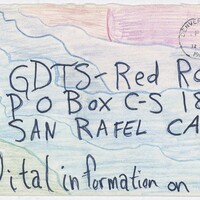 GDTS-Red Ro
P O Box C-S 18
SAN RAFEL CA
ital information on